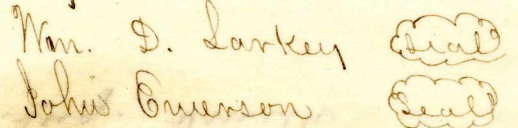 Wm. D. Larkey (seal)
John Emerson (seal)